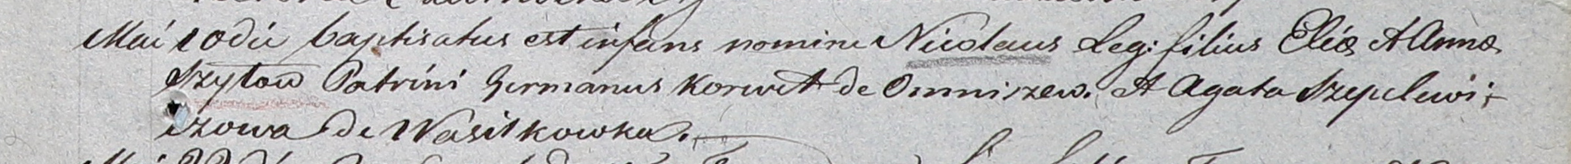 Mai 10 dii baptisatus est infans nomine Nicolaus Leg: filius Eliæ et Annæ
Szyłow Patrini Germanus Korwet de Omniszew. et Agata Szepelewi-
czowa de Wasilkowka.